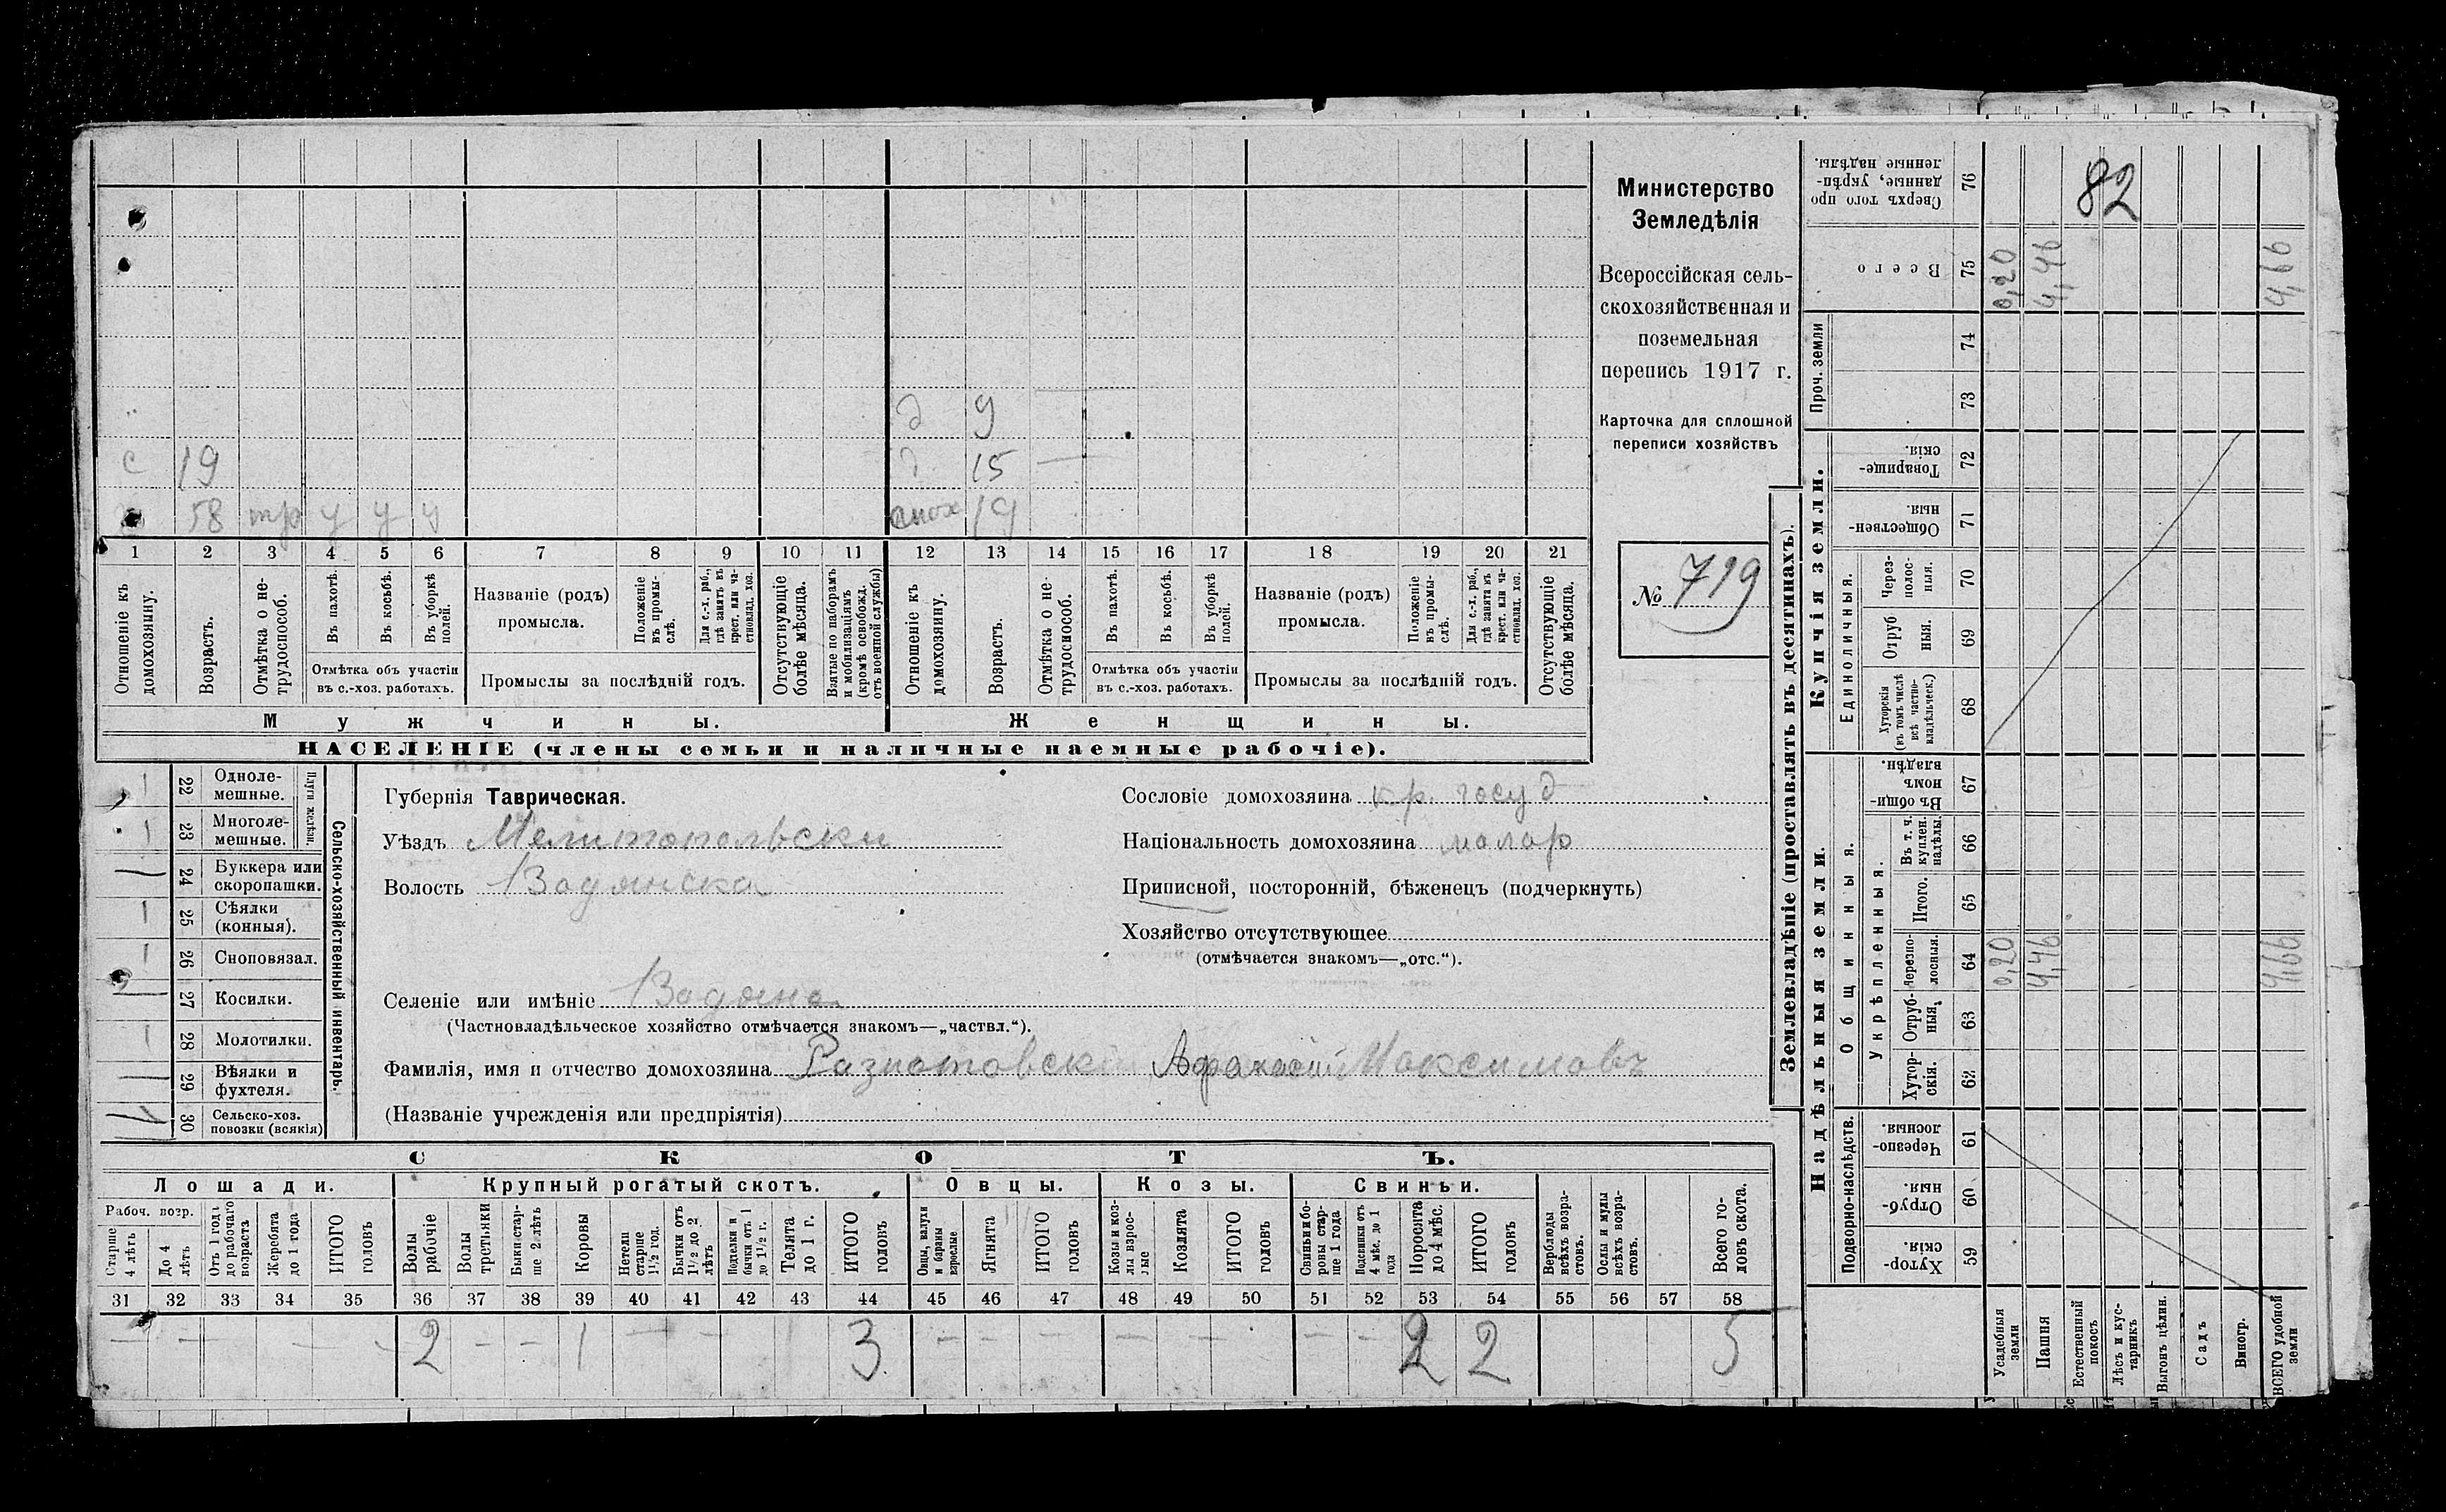 Министерство
Земледѣлія
Всероссійская сель-
скохозяйственная и
поземельная
перепись 1917 г.
Карточка для сплошной
переписи хозяйствъ
№ 719
82
д 9
с 19
15
58 тр у у у
19
1 2 3 4 5 6 7 8 9 10 11 12 13 14 15 16 17 18 19 20 21
Отношеніе къ домохозяину.
Возрастъ.
Отмѣтка о не-трудоспособ.
Въ пахотѣ.
Въ косьбѣ.
Въ уборкѣ полей.
Отмѣтка объ участіи
въ с.-хоз. работахъ.
Названіе (родъ)
промысла.
Положеніе въ промы-слѣ.
Для с.-х. раб., гдѣ занятъ въ крест. или ча-стновлад. хоз.
Промыслы за послѣдній годъ.
Отсутствующіе болѣе мѣсяца.
Взятые по наборамъ и мобилизаціямъ (кромѣ освобожд. отъ военной службы)
Отношеніе къ домохозяину.
Возрастъ.
Отмѣтка о не-трудоспособ.
Въ пахотѣ.
Въ косьбѣ.
Въ уборкѣ полей.
Отмѣтка объ участіи
въ с.-хоз. работахъ.
Названіе (родъ)
промысла.
Положеніе въ промы-слѣ.
Для с.-х. раб., гдѣ занята въ крест. или ча-стновлад. хоз.
Промыслы за послѣдній годъ.
Отсутствующіе болѣе мѣсяца.
Мужчины. Женщины.
НАСЕЛЕНІЕ (члены семьи и наличные наемные рабочіе).
Сельско-хозяйственный инвентарь.
Плуги желѣзн.
22 Одноле-мешные.
23 Многоле-мешные.
24 Буккера или скоропашки.
25 Сѣялки (конныя).
26 Сноповязал.
27 Косилки.
28 Молотилки.
29 Вѣялки и фухтеля.
30 Сельско-хоз. повозки (всякія)
Губернія Таврическая.
Уѣздъ Мелитопольски
Волость Водянска
Селеніе или имѣніе Водяна
(Частновладѣльческое хозяйство отмѣчается знакомъ—„частвл.“).
Фамилія, имя и отчество домохозяина Афанасій Максимовъ
(Названіе учрежденія или предпріятія)
Сословіе домохозяина кр. госуд
Національность домохозяина малор
Приписной, посторонній, бѣженецъ (подчеркнуть)
Хозяйство отсутствующее
(отмѣчается знакомъ—„отс.“).
СКОТЪ.
Лошади. Крупный рогатый скотъ. Овцы. Козы. Свиньи.
Рабоч. возр.
Старше 4 лѣтъ
До 4 лѣтъ
Отъ 1 года до рабочаго возраста
Жеребята до 1 года
ИТОГО головъ
Волы рабочіе
Волы третьяки
Быки стар-ше 2 лѣтъ
Коровы
Нетели старше 1½ год.
Бычки отъ 1½ до 2 лѣтъ
Подтелки и бычки отъ 1 до 1½ г.
Телята до 1 г.
ИТОГО головъ
Овцы, валухи и бараны взрослые
Ягнята
ИТОГО головъ
Козы и коз-лы взрос-лые
Козлята
ИТОГО головъ
Свиньи и бо-ровы стар-ше 1 года
Подсвинки отъ 4 мѣс. до 1 года
Поросята до 4 мѣс.
ИТОГО головъ
Верблюды всѣхъ возра-стовъ.
Ослы и мулы всѣхъ возра-стовъ.
Всего го-ловъ скота.
31 32 33 34 35 36 37 38 39 40 41 42 43 44 45 46 47 48 49 50 51 52 53 54 55 56 57 58
— — — 2 — — 1 — — 3 — — — — — — — — 2 2 5
Землевладѣніе (проставлять въ десятинахъ).
Надѣльныя земли. Купчія земли. Проч. земли
Подворно-наслѣдств.
Общинныя.
Укрѣпленныя.
Единоличныя.
59 Хутор-скія.
60 Отруб-ныя.
61 Черезпо-лосныя.
62 Хутор-скія.
63 Отруб-ныя.
64 Черезпо-лосныя.
65 Итого.
66 Въ т. ч. куплен. надѣлы.
67 Въ общи-номъ владѣн.
68 Хуторскія (въ томъ числѣ всѣ частно-владѣльческ.)
69 Отруб ныя.
70 Через-полос-ныя.
71 Обществен-ныя.
72 Товарище-скія.
73
74
75 Всего
76 Сверхъ того про данные, укрѣп-ленные надѣлы.
Усадебныя земли
Пашня
Естественный покосъ
Лѣсъ и кус-тарникъ
Выгонъ цѣлин.
Садъ
Виногр.
ВСЕГО удобной земли
0,20 4,46 4,66
0,20 4,46 4,66